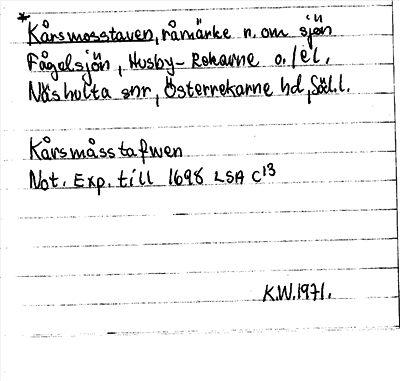 *
Kårsmosstaven, råmärke n. om sjön
Fågelsjön, Husby-Rekarne o./el.
Näshulta snr, Österrekarne hd, Söd.l.
Kårsmåsstafwen
Not. Exp. till 1698 LSA C¹³
K.W.1971.